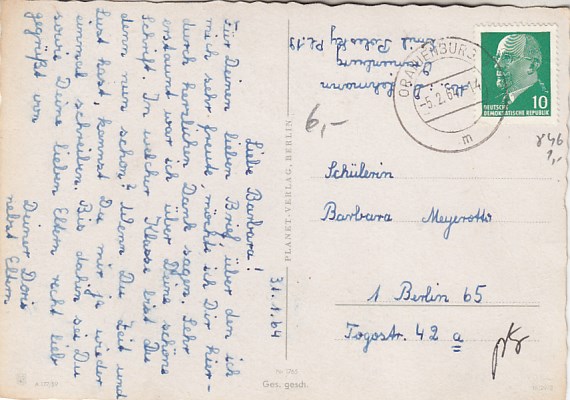 31.1.64
Liebe Barbara!
Für Deinen lieben Brief über den ich
mich sehr freute, möcht's ich Dir hier-
durch herzlichen Dank sagen. Sehr
erstaunt war ich über Deine schöne
Schrift. In welcher Klasse bist Du
denn nun schon? Wenn Du Zeit und
Lust hast, kannst Du mir ja wieder
einmal schreiben. Bis dahin sei Du
sowie Deine lieben Eltern recht lieb
gegrüßt von
Deiner Doris
nebst Eltern
Lehmann
Oranienburg
PLANET-VERLAG, BERLIN
6,-
ORANIENBURG
-5.2.64
m
DEUTSCHE
DEMOKRATISCHE REPUBLIK
10
846
1,-
Schülerin
Barbara Meyerotto
1 Berlin 65
Togostr. 42 a
Ges. gesch.